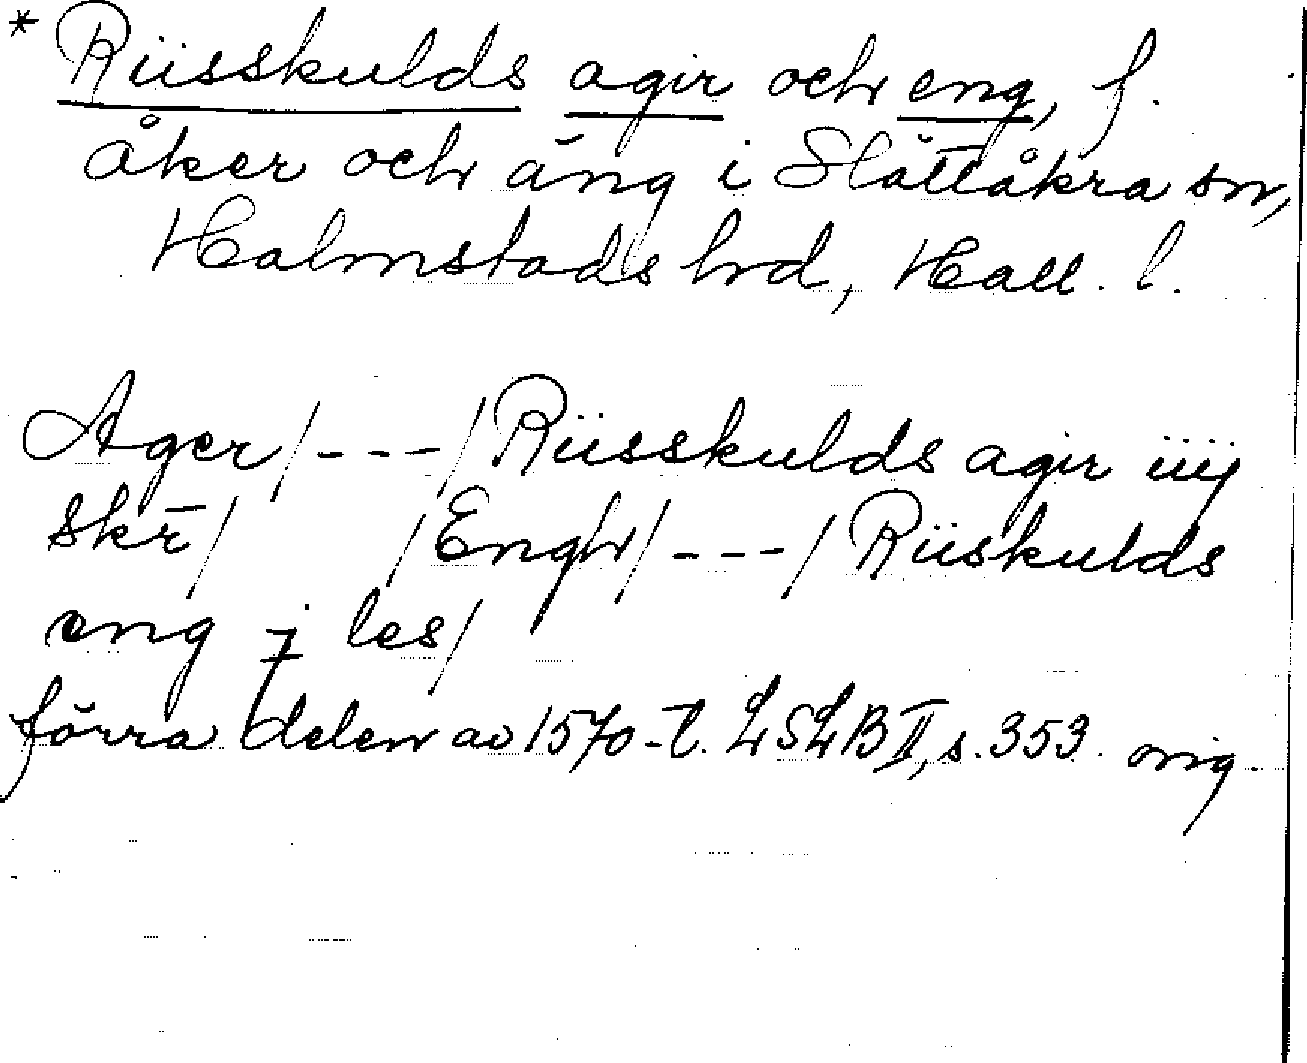 * Riisskulds agir och eng, f.
åker och äng i Slättåkra sn,
Halmstads hrd, Hall. l.
Ager/---/Riisskulds agir iiij
skr̄/ /Engh/---/Riiskulds
eng j les/
förra delen av 1570-t. LSLB II, s. 353. orig.